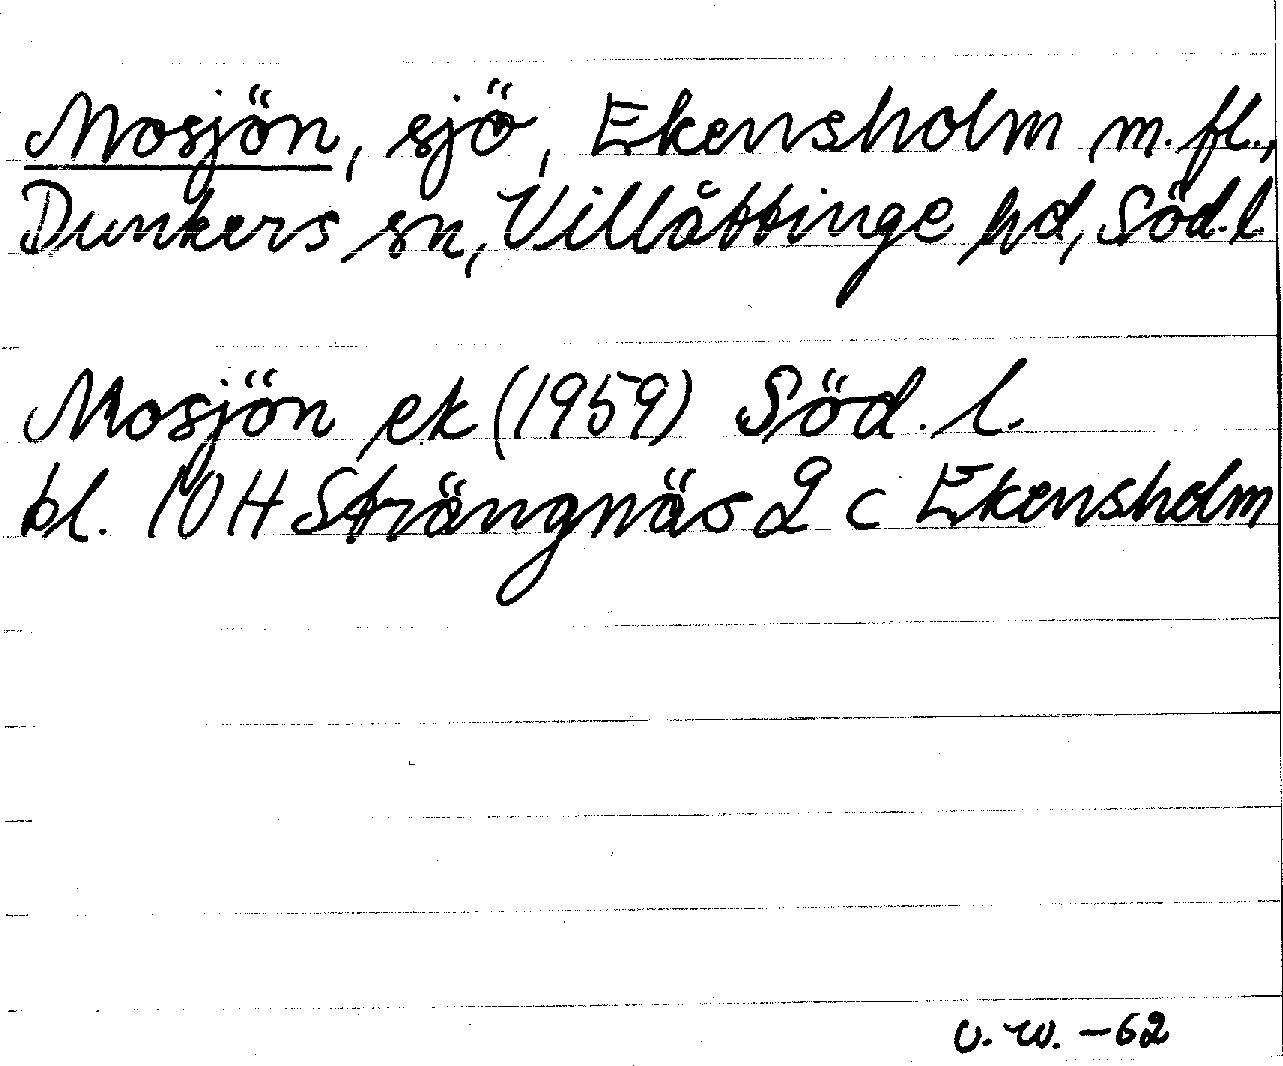 Mosjön, sjö, Ekensholm m. fl.,
Dunkers sn, Villåttinge hd, Söd. l.
Mosjön ek (1959) Söd. l.
bl. 10 H Strängnäs 2 c Ekensholm
v. w. -62